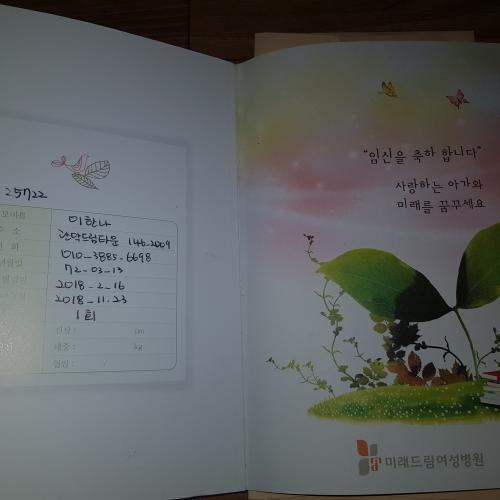 25722
모이름 이한나
주 소 관악드림타운 146-2009
전 화 010-3885-6698
72-03-13
2018-2-16
2018-11-23
1회
신장 : cm
체중 : kg
혈압 : /
"임신을 축하 합니다"
사랑하는 아가와
미래를 꿈꾸세요
미래드림여성병원